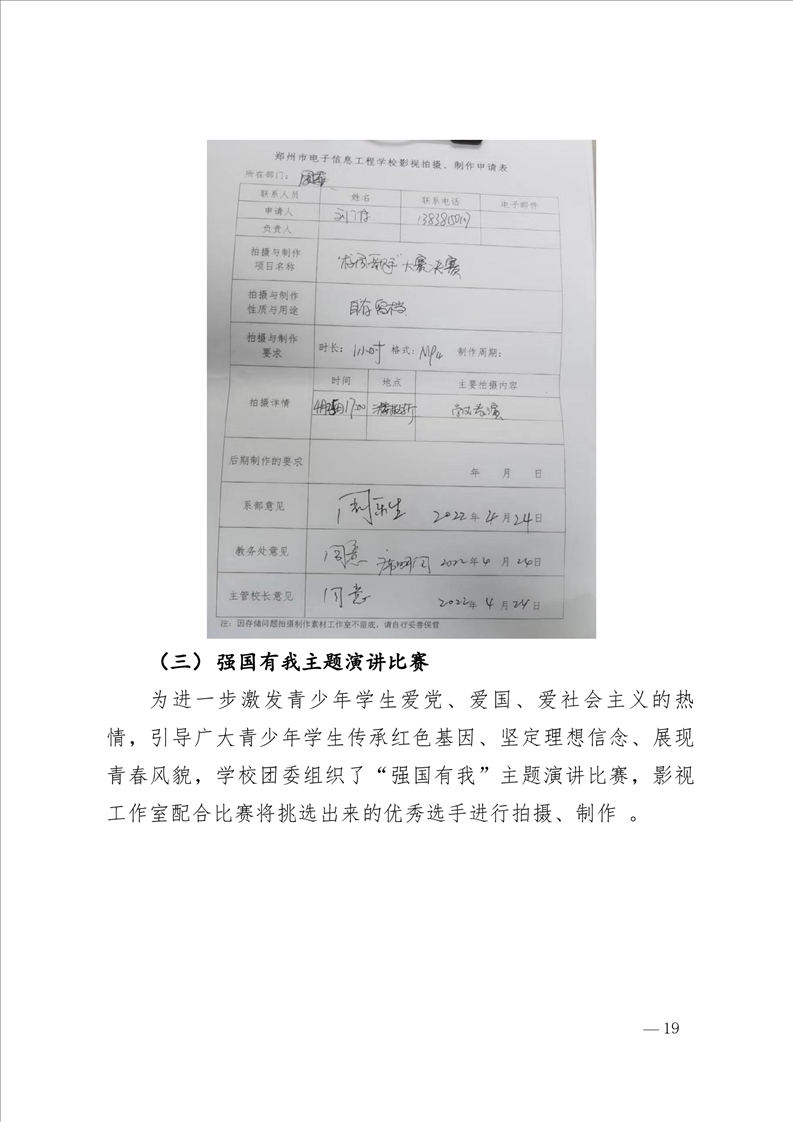 郑州市电子信息工程学校影视拍摄、制作申请表
所在部门：团委
联系人员 姓名 联系电话 电子邮件
申请人
负责人
拍摄与制作
项目名称
"校园歌手"大赛决赛
拍摄与制作
性质与用途
自存留档
拍摄与制作
要求
时长：1小时 格式：MP4 制作周期：
拍摄详情
时间 地点 主要拍摄内容
4月25日17:00
后期制作的要求
年 月 日
系部意见
2022年4月24日
教务处意见
同意 2022年4月24日
主管校长意见
同意 2022年4月24日
注：因存储问题拍摄制作素材工作室不留底，请自行妥善保管
（三）强国有我主题演讲比赛
为进一步激发青少年学生爱党、爱国、爱社会主义的热
情，引导广大青少年学生传承红色基因、坚定理想信念、展现
青春风貌，学校团委组织了“强国有我”主题演讲比赛，影视
工作室配合比赛将挑选出来的优秀选手进行拍摄、制作 。
— 19